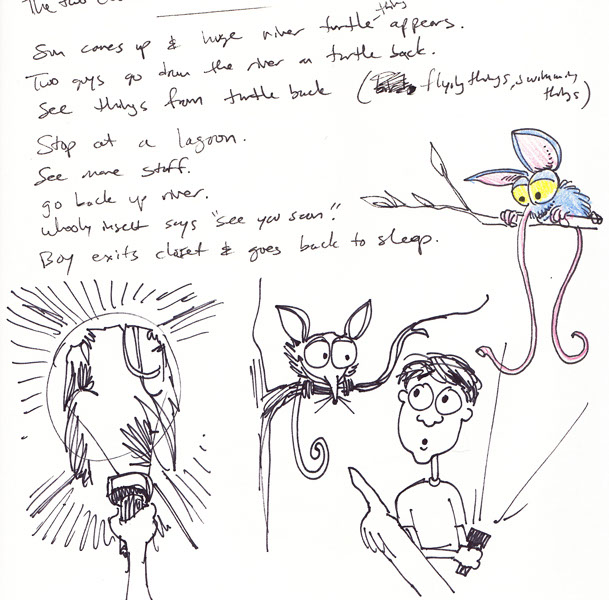 The two
Sun comes up & huge river turtle thing appears.
Two guys go down the river on turtle back.
See things from turtle back (flying things, swimming things)
Stop at a lagoon.
See more stuff.
go back up river.
Wooly insect says "see you soon."
Boy exits closet & goes back to sleep.